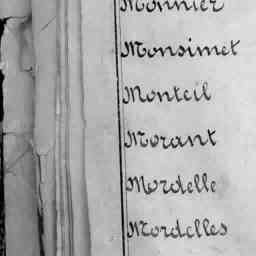 Monnier
Monsimet
Monteil
Morant
Mordelle
Mordelles